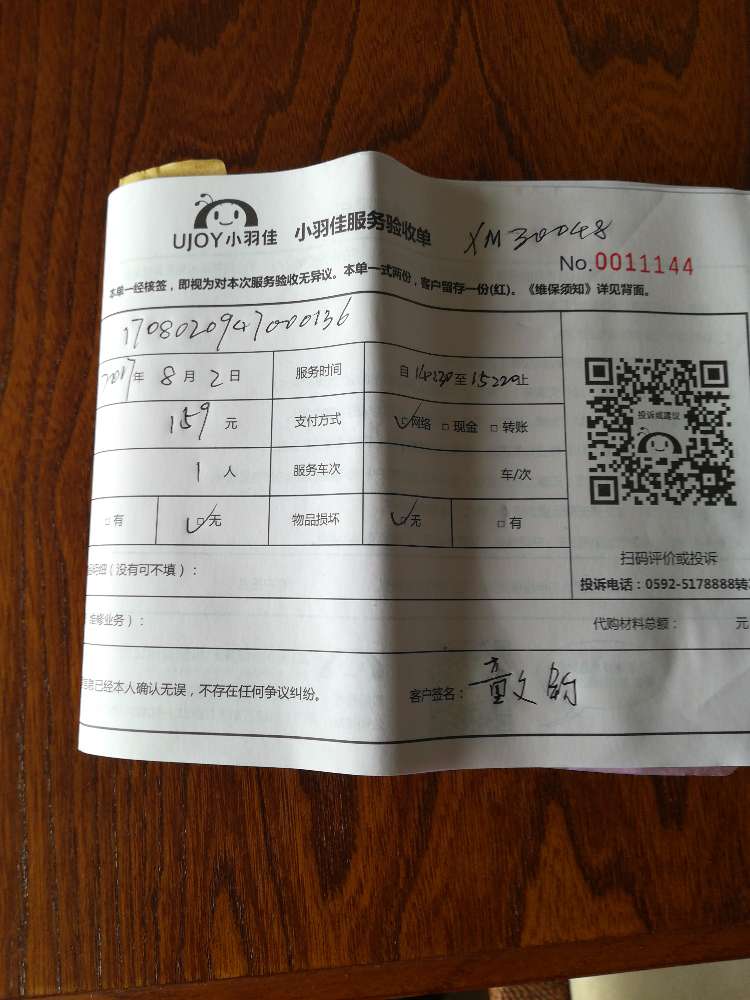 UJOY小羽佳 小羽佳服务验收单 XM30048
No.0011144
本单一经核签，即视为对本次服务验收无异议。本单一式两份，客户留存一份(红)。《维保须知》详见背面。
1708020947000136
2017年 8月 2日 服务时间 自 14:30 至 15:20 止
159 元 支付方式 网络 现金 转账
投诉或建议
1 人 服务车次 车/次
有 无 物品损坏 无 有
明细（没有可不填）：
扫码评价或投诉
投诉电话：0592-5178888转
维修业务）： 代购材料总额： 元
已经本人确认无误，不存在任何争议纠纷。 客户签名：童文